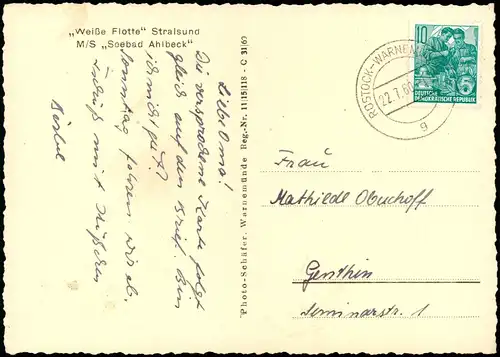 „Weiße Flotte" Stralsund
M/S „Seebad Ahlbeck"
Liebe Oma!
Die versprochene Karte folgt
gleich auf den Brief. Bin
ich nicht gut?
Sonntag fahren wir ab.
Gruß mit Küßchen
Bärbel
Photo-Schäfer, Warnemünde Reg.-Nr. 11/15/118 - C 31/60
10
DEUTSCHE
DEMOKRATISCHE REPUBLIK
ROSTOCK-WARNEM
22.7.60
g
Frau
Mathilde Obuchoff
Genthin
Seminarstr. 1